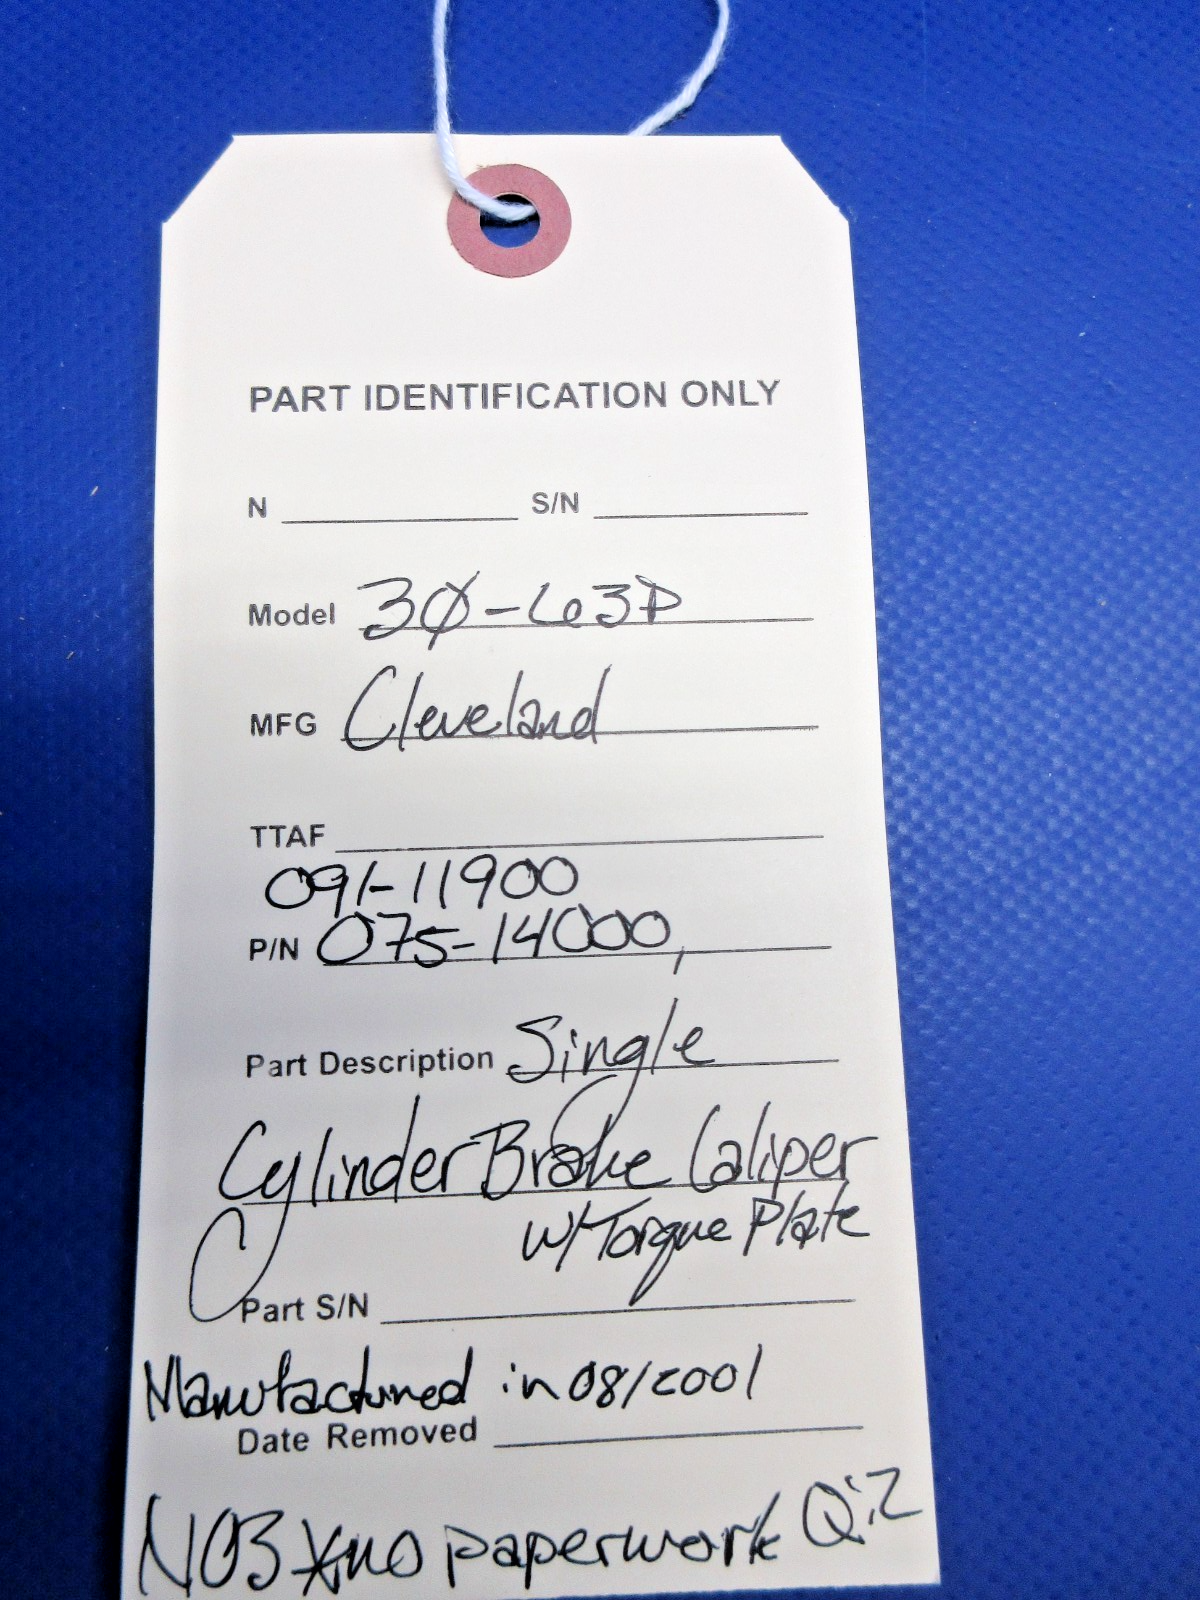 PART IDENTIFICATION ONLY
N S/N
Model 3Ø-63D
MFG Cleveland
TTAF
091-11900
P/N 075-14000,
Part Description Single
Cylinder Brake Caliper
w/Torque Plate
Part S/N
Manufactured in 08/2001
Date Removed
N03 *no paperwork Q:2